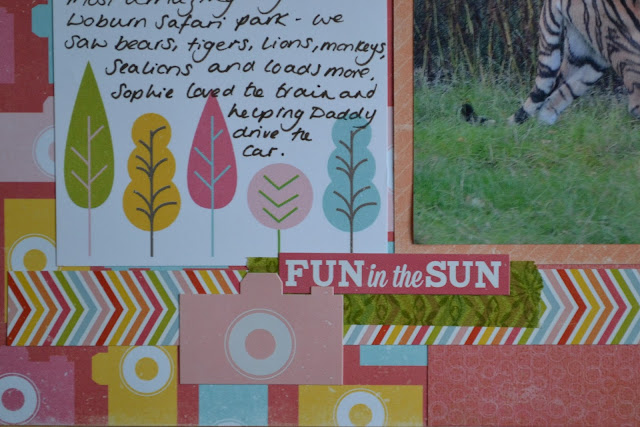 most amazing
Woburn Safari park - we
saw bears, tigers, lions, monkeys,
Sealions and loads more.
Sophie loved the train and
helping Daddy
drive the
car.
FUN in the SUN